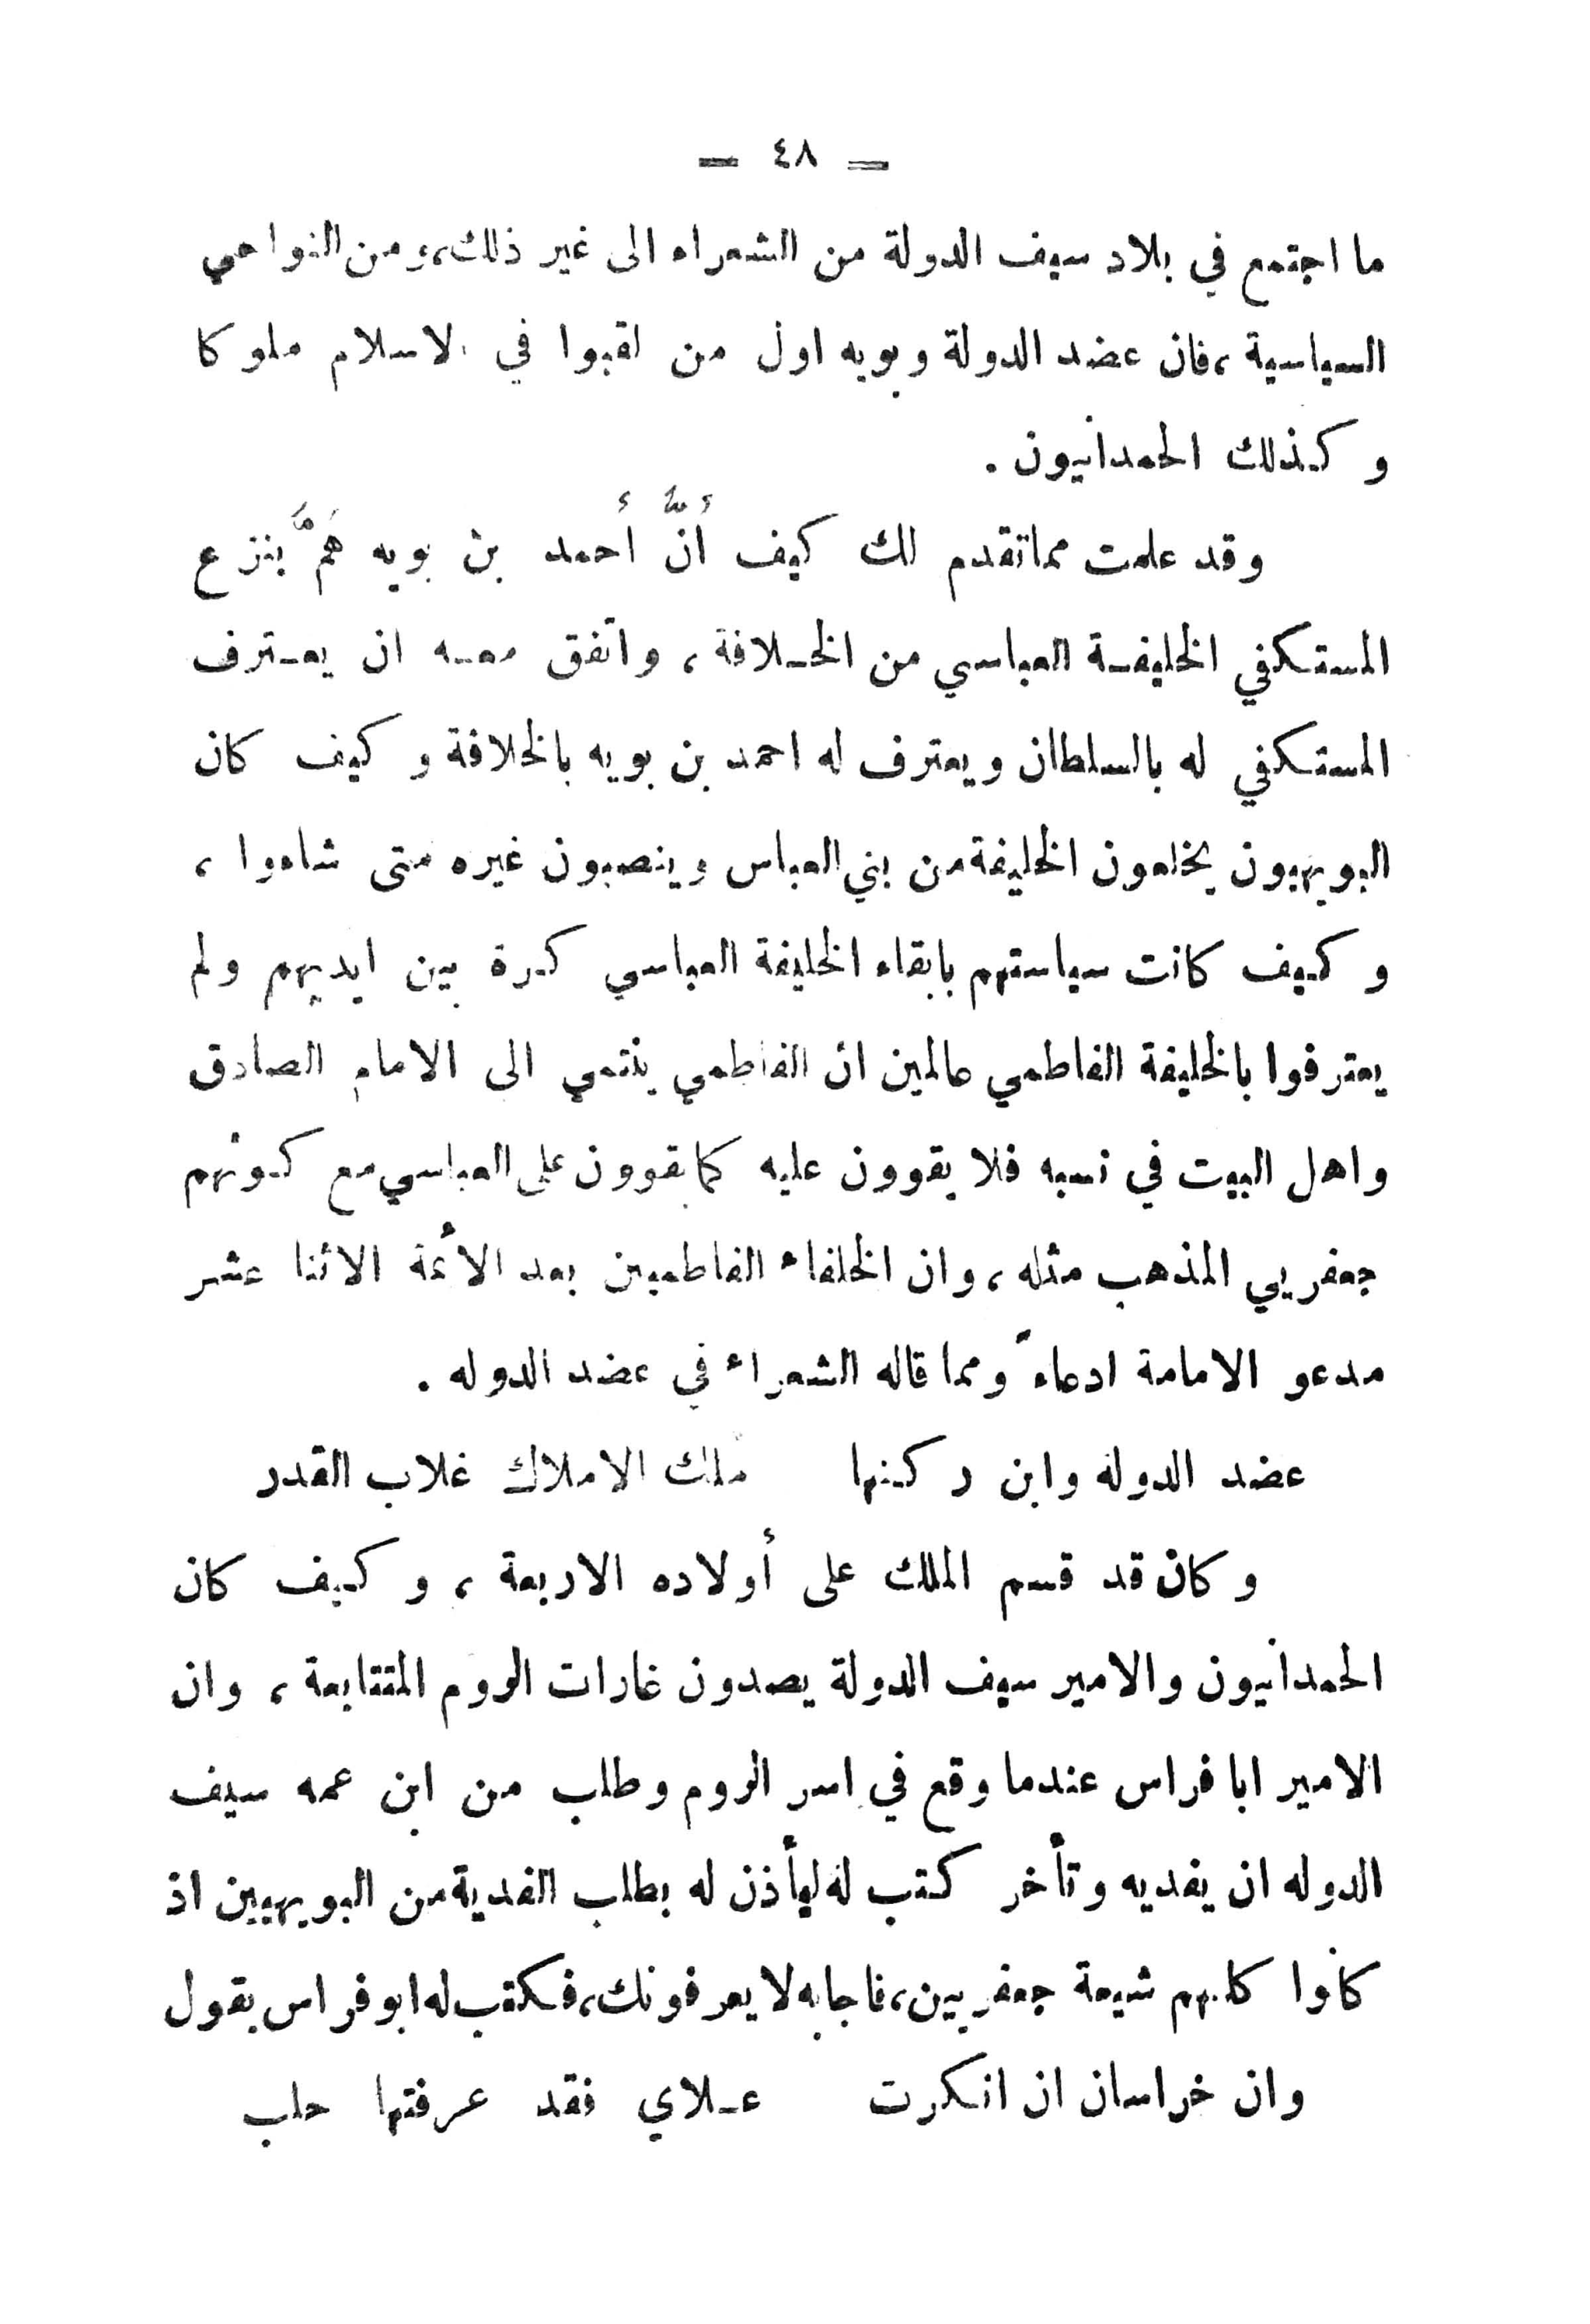 — ٤٨ —
ما اجتمع في بلاد سيف الدولة من الشعراء الى غير ذلك، ومن النواحي
السياسية، فان عضد الدولة وبويه اول من لقبوا في الاسلام ملوكا
وكذلك الحمدانيون.
وقد علمت مما تقدم لك كيف أنَّ أحمد بن بويه هَمَّ بنزع
المستكفي الخليفة العباسي من الخلافة، واتفق معه ان يعترف
المستكفي له بالسلطان ويعترف له احمد بن بويه بالخلافة وكيف كان
البويهيون يخلعون الخليفة من بني العباس وينصبون غيره متى شاءوا،
وكيف كانت سياستهم بابقاء الخليفة العباسي كرة بين ايديهم ولم
يعترفوا بالخليفة الفاطمي عالمين ان الفاطمي ينتمي الى الامام الصادق
واهل البيت في نسبه فلا يقوون عليه كما يقوون على العباسي مع كونهم
جعفريي المذهب مثله، وان الخلفاء الفاطميين بعد الأئمة الاثنا عشر
مدعو الامامة ادعاءً ومما قاله الشعراء في عضد الدوله.
عضد الدوله وابن ركنها ملك الاملاك غلاب القدر
وكان قد قسم الملك على أولاده الاربعة، وكيف كان
الحمدانيون والامير سيف الدولة يصدون غارات الروم المتتابعة، وان
الامير ابا فراس عندما وقع في اسر الروم وطلب من ابن عمه سيف
الدوله ان يفديه وتأخر كتب له ليأذن له بطلب الفدية من البويهيين اذ
كانوا كلهم شيعة جعفريين، فاجابه لا يعرفونك، فكتب له ابو فراس يقول
وان خراسان ان انكرت علاي فقد عرفتها حلب